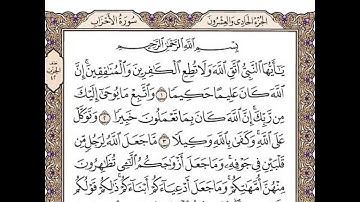 الجزء الحادي والعشرون
سورة الأحزاب
بِسْمِ اللَّهِ الرَّحْمَٰنِ الرَّحِيمِ
يَا أَيُّهَا النَّبِيُّ اتَّقِ اللَّهَ وَلَا تُطِعِ الْكَافِرِينَ وَالْمُنَافِقِينَ إِنَّ
اللَّهَ كَانَ عَلِيمًا حَكِيمًا ١ وَاتَّبِعْ مَا يُوحَىٰ إِلَيْكَ
مِن رَّبِّكَ إِنَّ اللَّهَ كَانَ بِمَا تَعْمَلُونَ خَبِيرًا ٢ وَتَوَكَّلْ
عَلَى اللَّهِ وَكَفَىٰ بِاللَّهِ وَكِيلًا ٣ مَّا جَعَلَ اللَّهُ لِرَجُلٍ مِّن
قَلْبَيْنِ فِي جَوْفِهِ وَمَا جَعَلَ أَزْوَاجَكُمُ اللَّائِي تُظَاهِرُونَ
مِنْهُنَّ أُمَّهَاتِكُمْ وَمَا جَعَلَ أَدْعِيَاءَكُمْ أَبْنَاءَكُمْ ذَٰلِكُمْ قَوْلُكُم